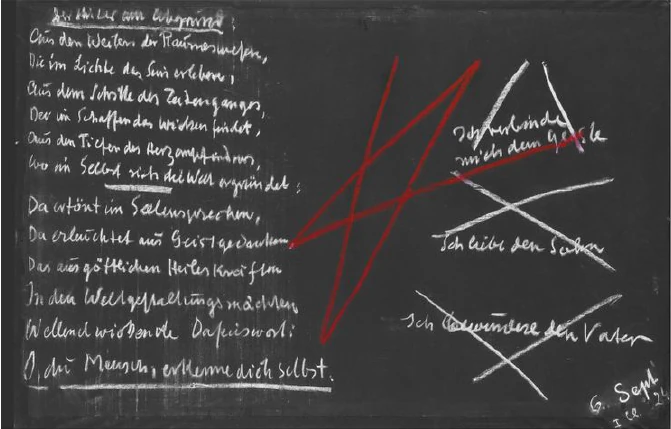 Der Hüter am Abgrund:
Aus den Weiten der Raumeswesen,
Die im Lichte das Sein erleben,
Aus dem Schritte des Zeitenganges,
Der im Schaffen das Wirken findet,
Aus den Tiefen des Herzempfindens,
Wo im Selbst sich die Welt ergründet:
Da ertönt im Seelensprechen,
Da erleuchtet aus Geistgedanken
Das aus göttlichen Heileskräften
In den Weltgestaltungsmächten
Wellend wirkende Daseinswort:
O, du Mensch, erkenne dich selbst.
Ich verbinde
mich dem Geiste
Ich liebe den Sohn
Ich bewundere den Vater
6. Sept
I 24